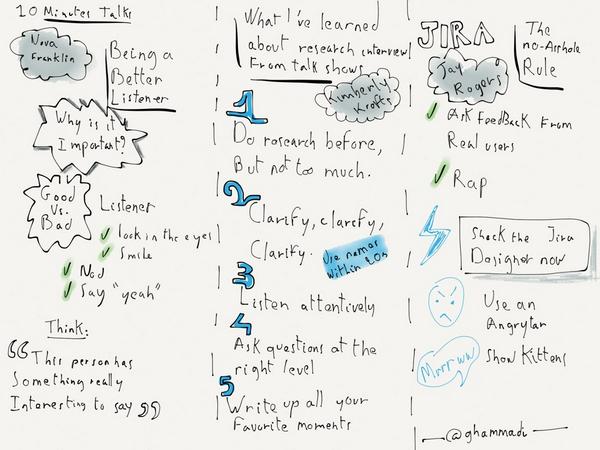 10 Minutes Talks
Nova
Franklin
Being a
Better
Listener
Why is it
Important?
Good
Vs.
Bad
Listener
look in the eyes
Smile
Nod
Say "yeah"
Think:
“This person has
Something really
Interesting to say”
What I've learned
about research interview
From talk shows
Kimberly
Krofts
1
Do research before,
But not too much.
2
Clarify, clarify,
Clarify.
Use names
within 20s
3
Listen attentively
4
Ask questions at the
right level
5
Write up all your
Favorite moments
JIRA
The
no-Asshole
Rule
Jay
Rogers
Ask FeedBack From
Real users
Rap
Shock the Jira
Designer now
Use an
Angrytar
Mrrrww
Show Kittens
@ghammadi